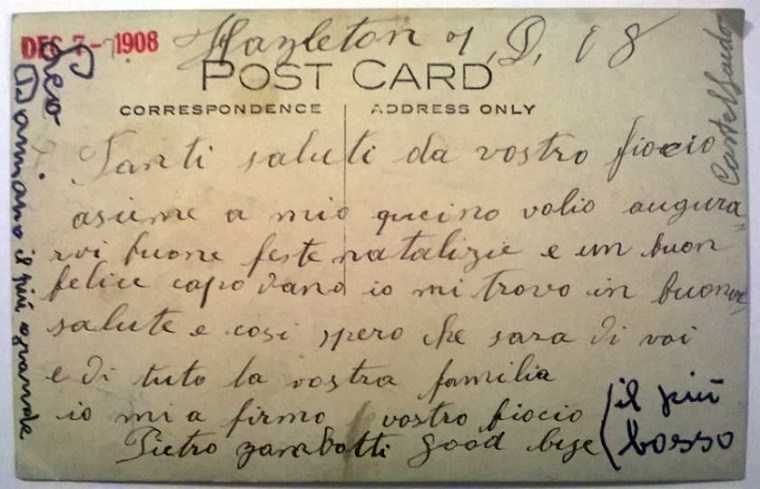 DEC 7- 1908
Hazleton 7, D, 1 8
POST CARD
CORRESPONDENCE ADDRESS ONLY
Tanti saluti da vostro fiocio
asieme a mio qucino volio augura=
rvi buone feste natalizie e un buon
felice capo dano io mi trovo in buone
salute e cosi spero che sara di voi
e di tuto la vostra familia
io mi a firmo vostro fiocio
Pietro zarabotti good bye
(il più
basso
Leo
Damiano il più grande